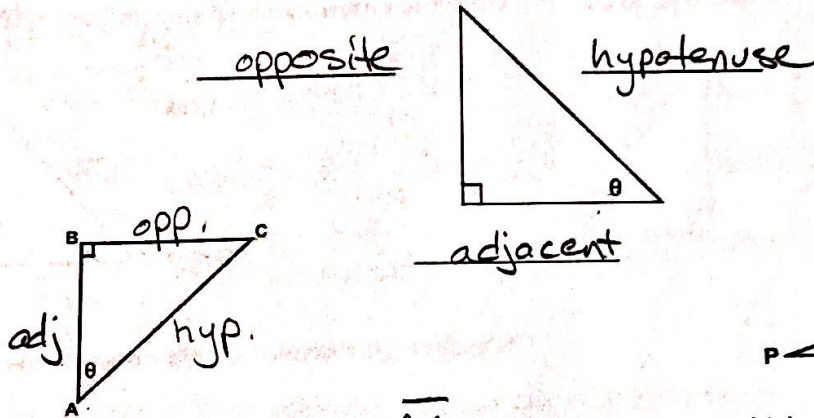 opposite hypotenuse
θ
adjacent
B opp. C
adj hyp.
θ
A
P